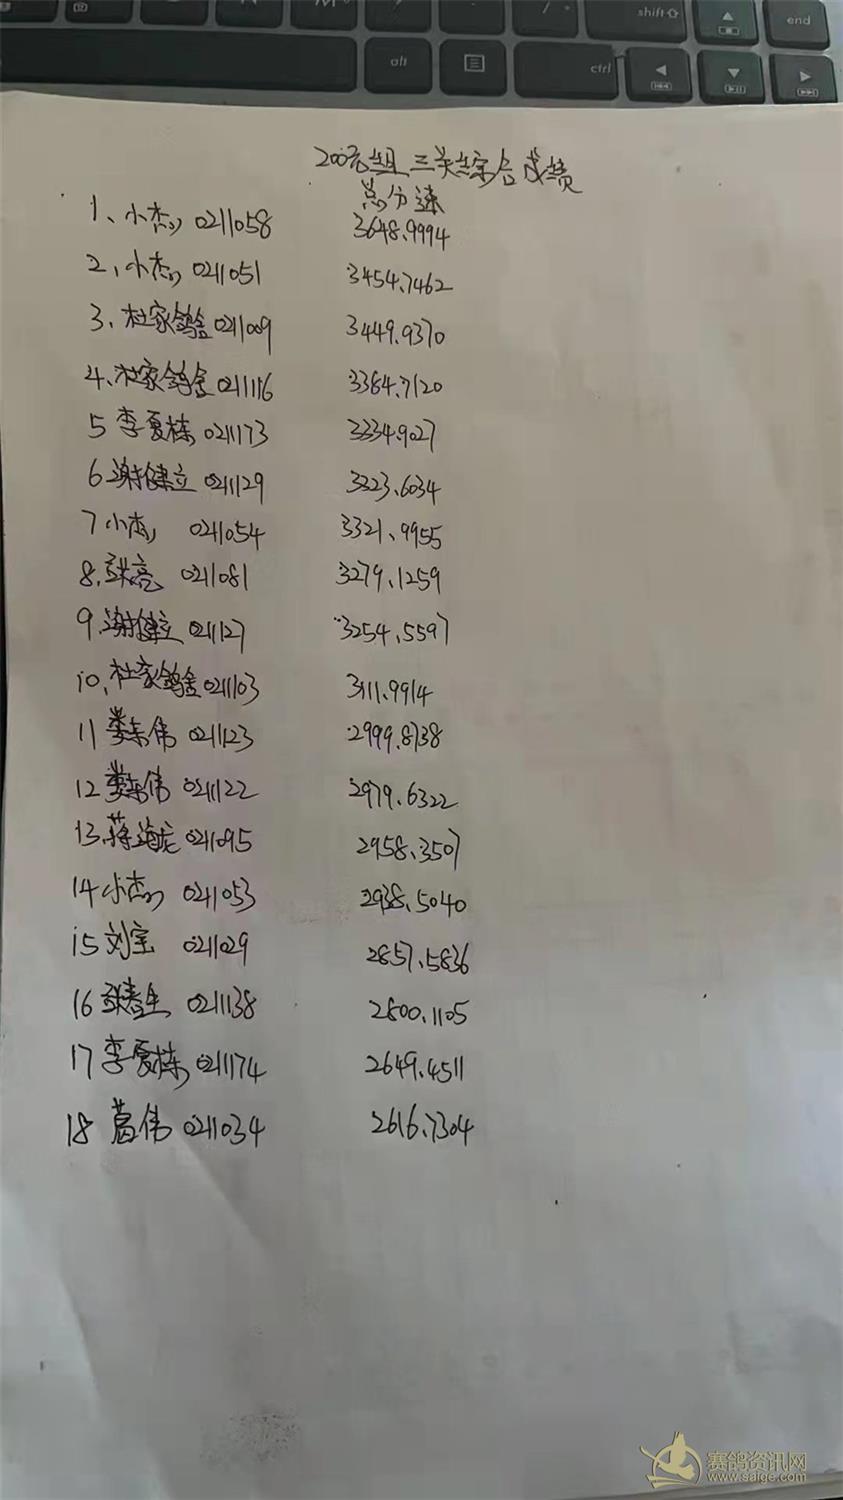 shift
end
alt
ctrl
200元组 三关综合成绩
总分速
1、小杰 0211058 3648.9994
2、小杰 0211051 3454.7462
3、杜家鸽舍 0211009 3449.9370
4、杜家鸽舍 0211116 3384.7120
5 李夏栋 0211173 3334.9027
6 谢健立 0211129 3323.6034
7 小杰 0211054 3321.9955
8、张亮 0211081 3279.1259
9、谢健立 0211127 3254.5597
10、杜家鸽舍 0211103 3111.9914
11 娄东伟 0211123 2999.8738
12 娄东伟 0211122 2979.6322
13、蒋海龙 0211095 2958.3507
14 小杰 0211053 2938.5040
15 刘宝 0211029 2857.5836
16 张春生 0211138 2800.1105
17 李夏栋 0211174 2649.4511
18 葛伟 0211034 2616.7304
赛鸽资讯网
www.saige.com